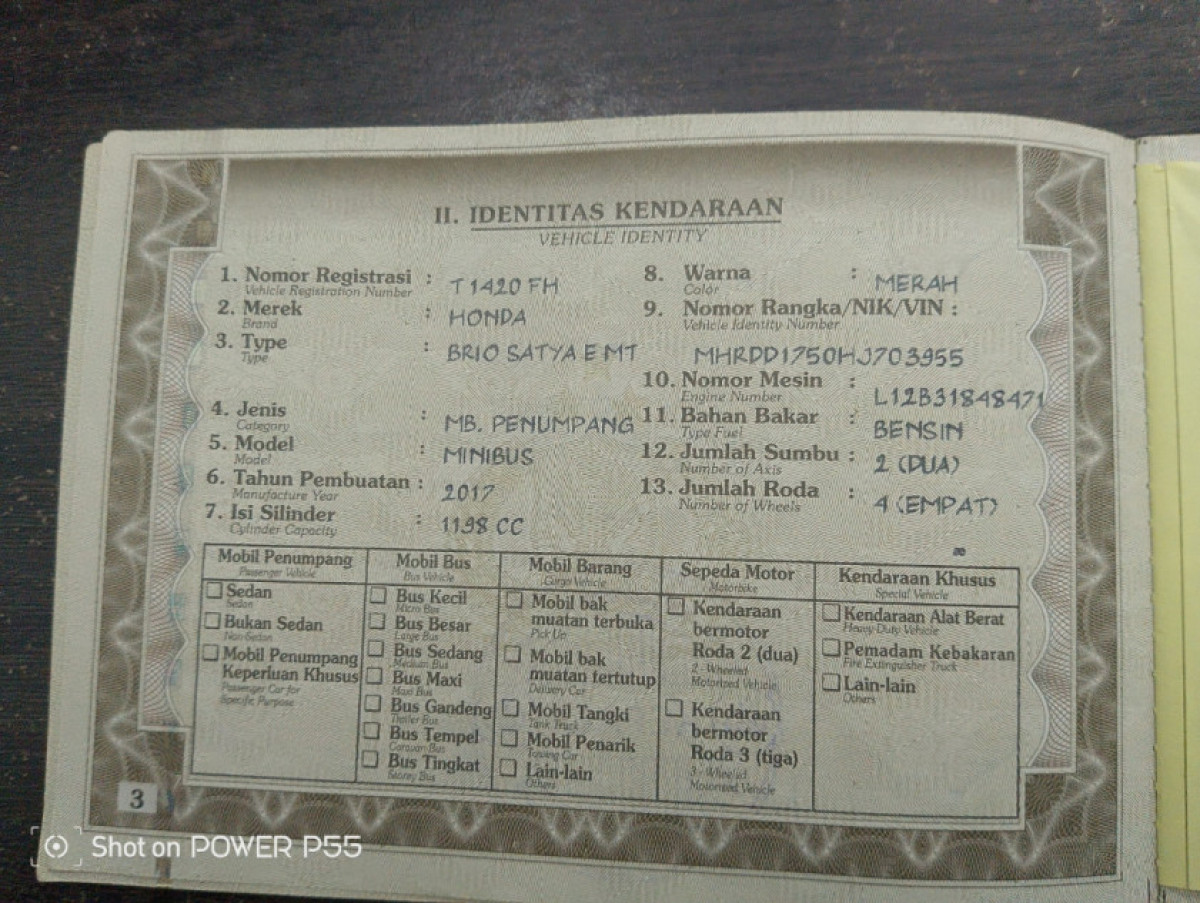 II. IDENTITAS KENDARAAN
VEHICLE IDENTITY
1. Nomor Registrasi : T 1420 FH
Vehicle Registration Number
2. Merek : HONDA
Brand
3. Type : BRIO SATYA E MT
Type
4. Jenis : MB. PENUMPANG
Category
5. Model : MINIBUS
Model
6. Tahun Pembuatan : 2017
Manufacture Year
7. Isi Silinder : 1198 CC
Cylinder Capacity
8. Warna : MERAH
Color
9. Nomor Rangka/NIK/VIN :
Vehicle Identity Number
MHRDD1750HJ703955
10. Nomor Mesin : L12B31848471
Engine Number
11. Bahan Bakar : BENSIN
Type Fuel
12. Jumlah Sumbu : 2 (DUA)
Number of Axis
13. Jumlah Roda : 4 (EMPAT)
Number of Wheels
Mobil Penumpang
Passenger Vehicle
Sedan
Sedan
Bukan Sedan
Non Sedan
Mobil Penumpang
Keperluan Khusus
Passenger Car for
Specific Purpose
Mobil Bus
Bus Vehicle
Bus Kecil
Micro Bus
Bus Besar
Large Bus
Bus Sedang
Medium Bus
Bus Maxi
Maxi Bus
Bus Gandeng
Trailer Bus
Bus Tempel
Caravan Bus
Bus Tingkat
Storey Bus
Mobil Barang
Cargo Vehicle
Mobil bak
muatan terbuka
Pick Up
Mobil bak
muatan tertutup
Delivery Car
Mobil Tangki
Tank Truck
Mobil Penarik
Towing Car
Lain-lain
Others
Sepeda Motor
Motorbike
Kendaraan
bermotor
Roda 2 (dua)
2 - Wheeled
Motorized Vehicle
Kendaraan
bermotor
Roda 3 (tiga)
3 - Wheeled
Motorized Vehicle
Kendaraan Khusus
Special Vehicle
Kendaraan Alat Berat
Heavy Duty Vehicle
Pemadam Kebakaran
Fire Extinguisher Truck
Lain-lain
Others
3
Shot on POWER P55